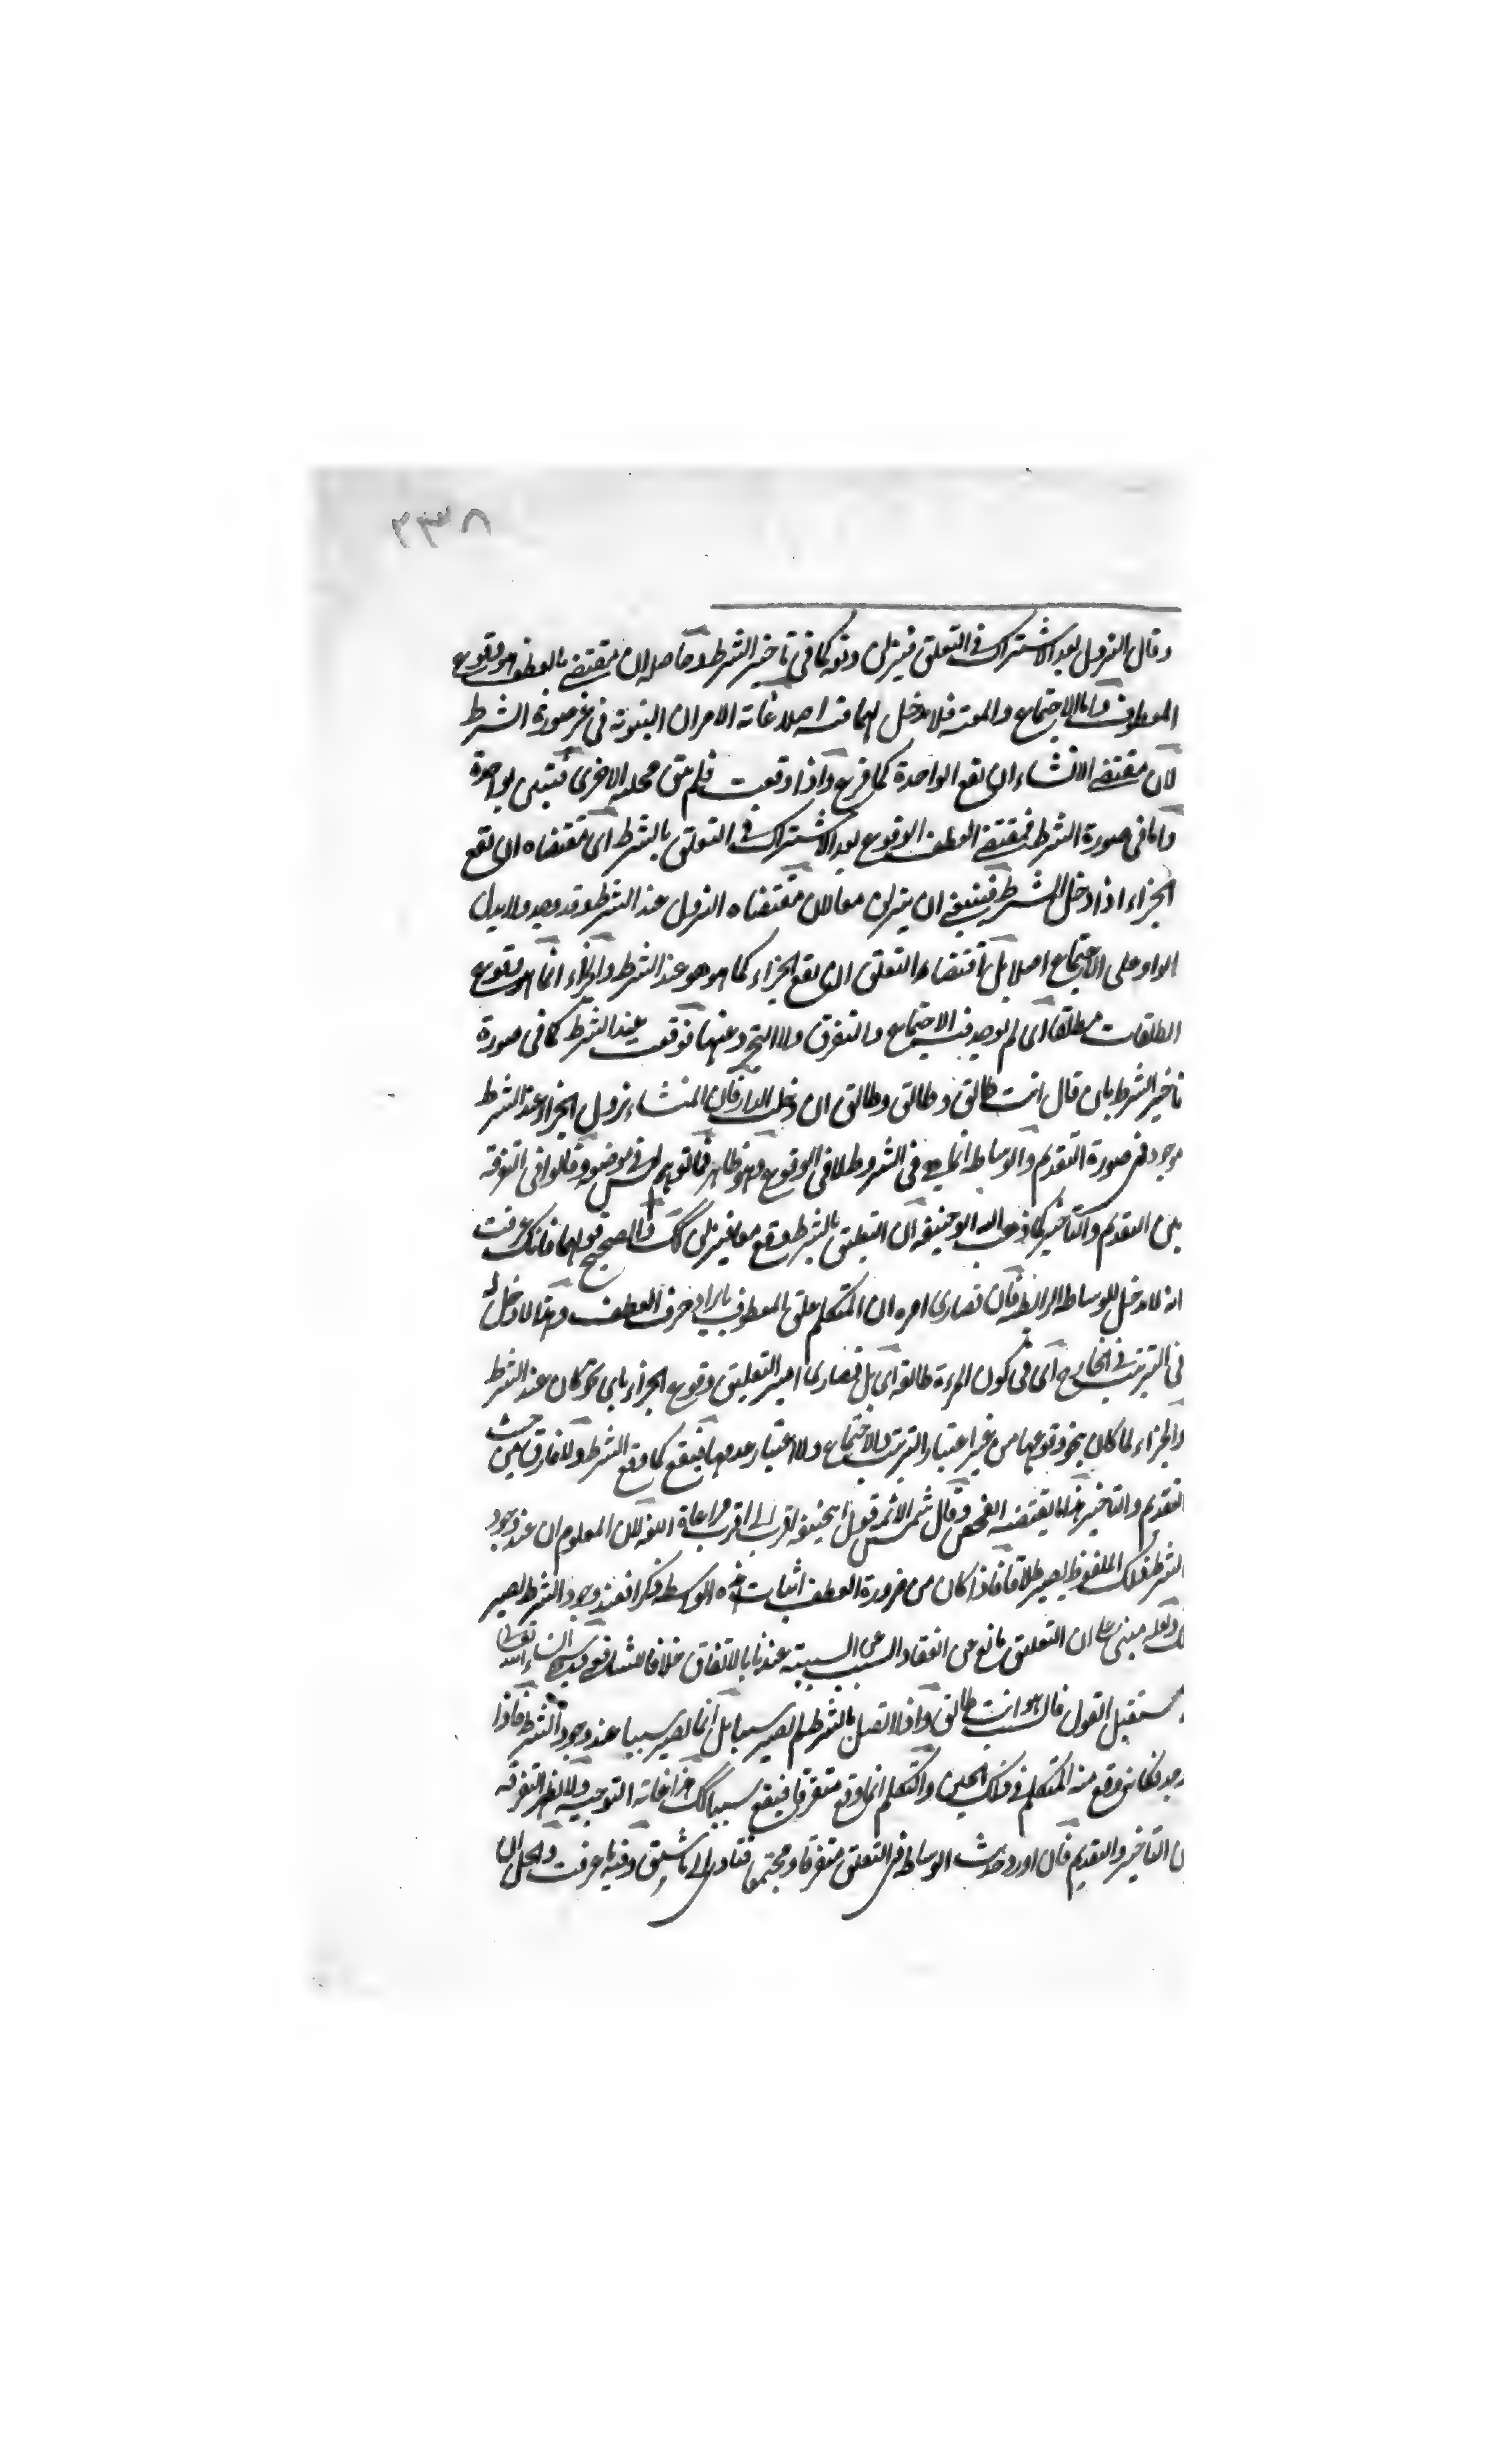 ٢٣٨
وقال النزول بعد الاشتراك في التعلق فينزلن دفعة كما في تأخير الشرط وحاصله ان مقتضى العطف هو وقوع
المعطوف واما الاجتماع والمعية فلا مدخل لهما فيه اصلا غاية الامر ان البينونة في غير صورة الشرط
لان مقتضى الانشاء ان يقع الواحدة كما فرغ واذا وقعت فلم يبق محلية الاخرى فتبين بواحدة
واما في صورة الشرط فمقتضى العطف الوقوع بعد الاشتراك في التعلق بالشرط اي مقتضاه ان يقع
الجزاء اذا دخل الشرط فينبغي ان ينزلن معا لان مقتضاه النزول عند الشرط وقد وجد ولا يدل
الواو على الاجتماع اصلا بل اقتضاء التعلق ان يقع الجزاء كما هو هو عند الشرط والجزاء انما هو وقوع
الطلقات مطلقا اي لم يوجد فيه الاجتماع والتفرق ولا التجرد عنهما فوقعت عند الشرط كما في صورة
تأخير الشرط بان قال انت طالق وطالق وطالق ان دخلت الدار فان المنشاء نزول الجزاء عند الشرط
موجود في صورة التقديم والوساطة انما هي في الشروط لا في الوقوع وهو ظاهر فما توهم ليس في موضعه وقالوا في التفرقة
بين التقديم والتأخير كما ذهب اليه ابو حنيفة ان التعليق بالشرط وقع معا فينزلن كك والصحيح قولهما فانك عرفت
انه لا مدخل للوساطة الرابطة فان قصارى امره ان المتكلم علق المعطوف بايراد حرف العطف وهذا لا دخل له
في الترتيب في الخارج اي في كون المرءة طالقة اي بل قصارى امر التعليق وقوع الجزاء باي نحو كان عند الشرط
والجزاء لما كان نحو وقوعها من غير اعتبار الترتيب والاجتماع ولا اعتبار عدمهما فيقع كما وقع الشرط ولا فارق بين
التقديم والتأخير هذا ما يقتضيه الفحص وقال شمس الائمة قول ابي حنيفة اقرب الى مراعاة اللفظ لان المعلوم ان عند وجود
الشرط ذلك الملفوظ يصير طلاقا فاذا كان من ضرورة العطف اثبات هذه الواسطة ذكرا فعند وجود الشرط يصير
كك ولعله مبني على ان التعليق مانع عن انعقاد السبب عن السببية عندنا بالاتفاق خلافا للشافعي ان شاء الله تعالى
مستقبل القول فالسبب هو انت طالق واذا لا تصل بالشرط لم يصير سببا بل انما يصير سببا عند وجود الشرط فاذا
وجد فكانه وقع منه المتكلم في ذلك الحين والتكلم انما وقع متفرقا فيقع سببا كك هذا غاية التوجيه ولا يظهر التفرقة
بين التأخير والتقديم فان اورد حديث الوساطة في التعلق متفرقا ومجتمعا وفيه ما عرفت والحق ان